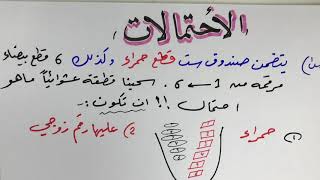 الاحتمالات
س١) يتضمن صندوق ست قطع حمراء وكذلك 6 قطع بيضاء
مرقمه من 1 ← 6. سحبنا قطعة عشوائياً ماهو
احتمال !!! ان تكون :-
1) حمراء 2) عليها رقم زوجي